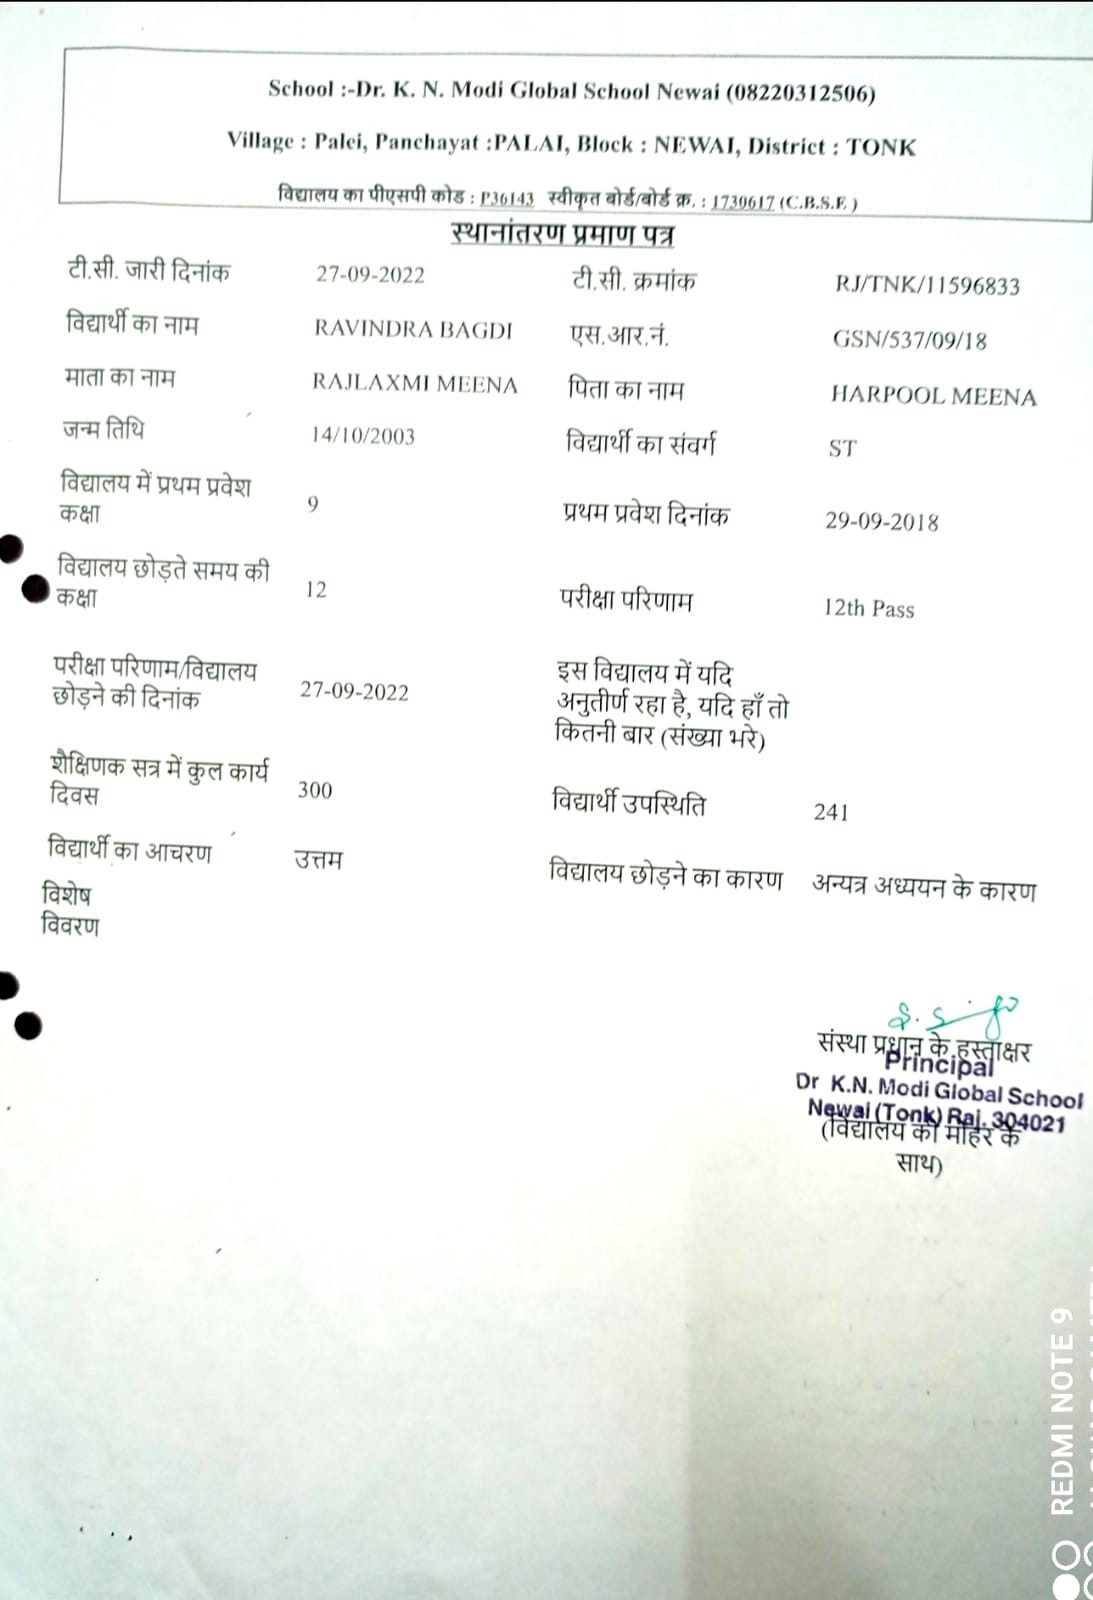 School :-Dr. K. N. Modi Global School Newai (08220312506)
Village : Palei, Panchayat :PALAI, Block : NEWAI, District : TONK
विद्यालय का पीएसपी कोड : P36143 स्वीकृत बोर्ड/बोर्ड क्र. : 1730617 (C.B.S.E )
स्थानांतरण प्रमाण पत्र
टी.सी. जारी दिनांक 27-09-2022 टी.सी. क्रमांक RJ/TNK/11596833
विद्यार्थी का नाम RAVINDRA BAGDI एस.आर.नं. GSN/537/09/18
माता का नाम RAJLAXMI MEENA पिता का नाम HARPOOL MEENA
जन्म तिथि 14/10/2003 विद्यार्थी का संवर्ग ST
विद्यालय में प्रथम प्रवेश
कक्षा 9 प्रथम प्रवेश दिनांक 29-09-2018
विद्यालय छोड़ते समय की
कक्षा 12 परीक्षा परिणाम 12th Pass
परीक्षा परिणाम/विद्यालय
छोड़ने की दिनांक 27-09-2022
इस विद्यालय में यदि
अनुतीर्ण रहा है, यदि हाँ तो
कितनी बार (संख्या भरे)
शैक्षिणक सत्र में कुल कार्य
दिवस 300 विद्यार्थी उपस्थिति 241
विद्यार्थी का आचरण उत्तम विद्यालय छोड़ने का कारण अन्यत्र अध्ययन के कारण
विशेष
विवरण
संस्था प्रधान के हस्ताक्षर
Principal
Dr K.N. Modi Global School
Newai (Tonk) Raj. 304021
(विद्यालय की मोहर के
साथ)
REDMI NOTE 9